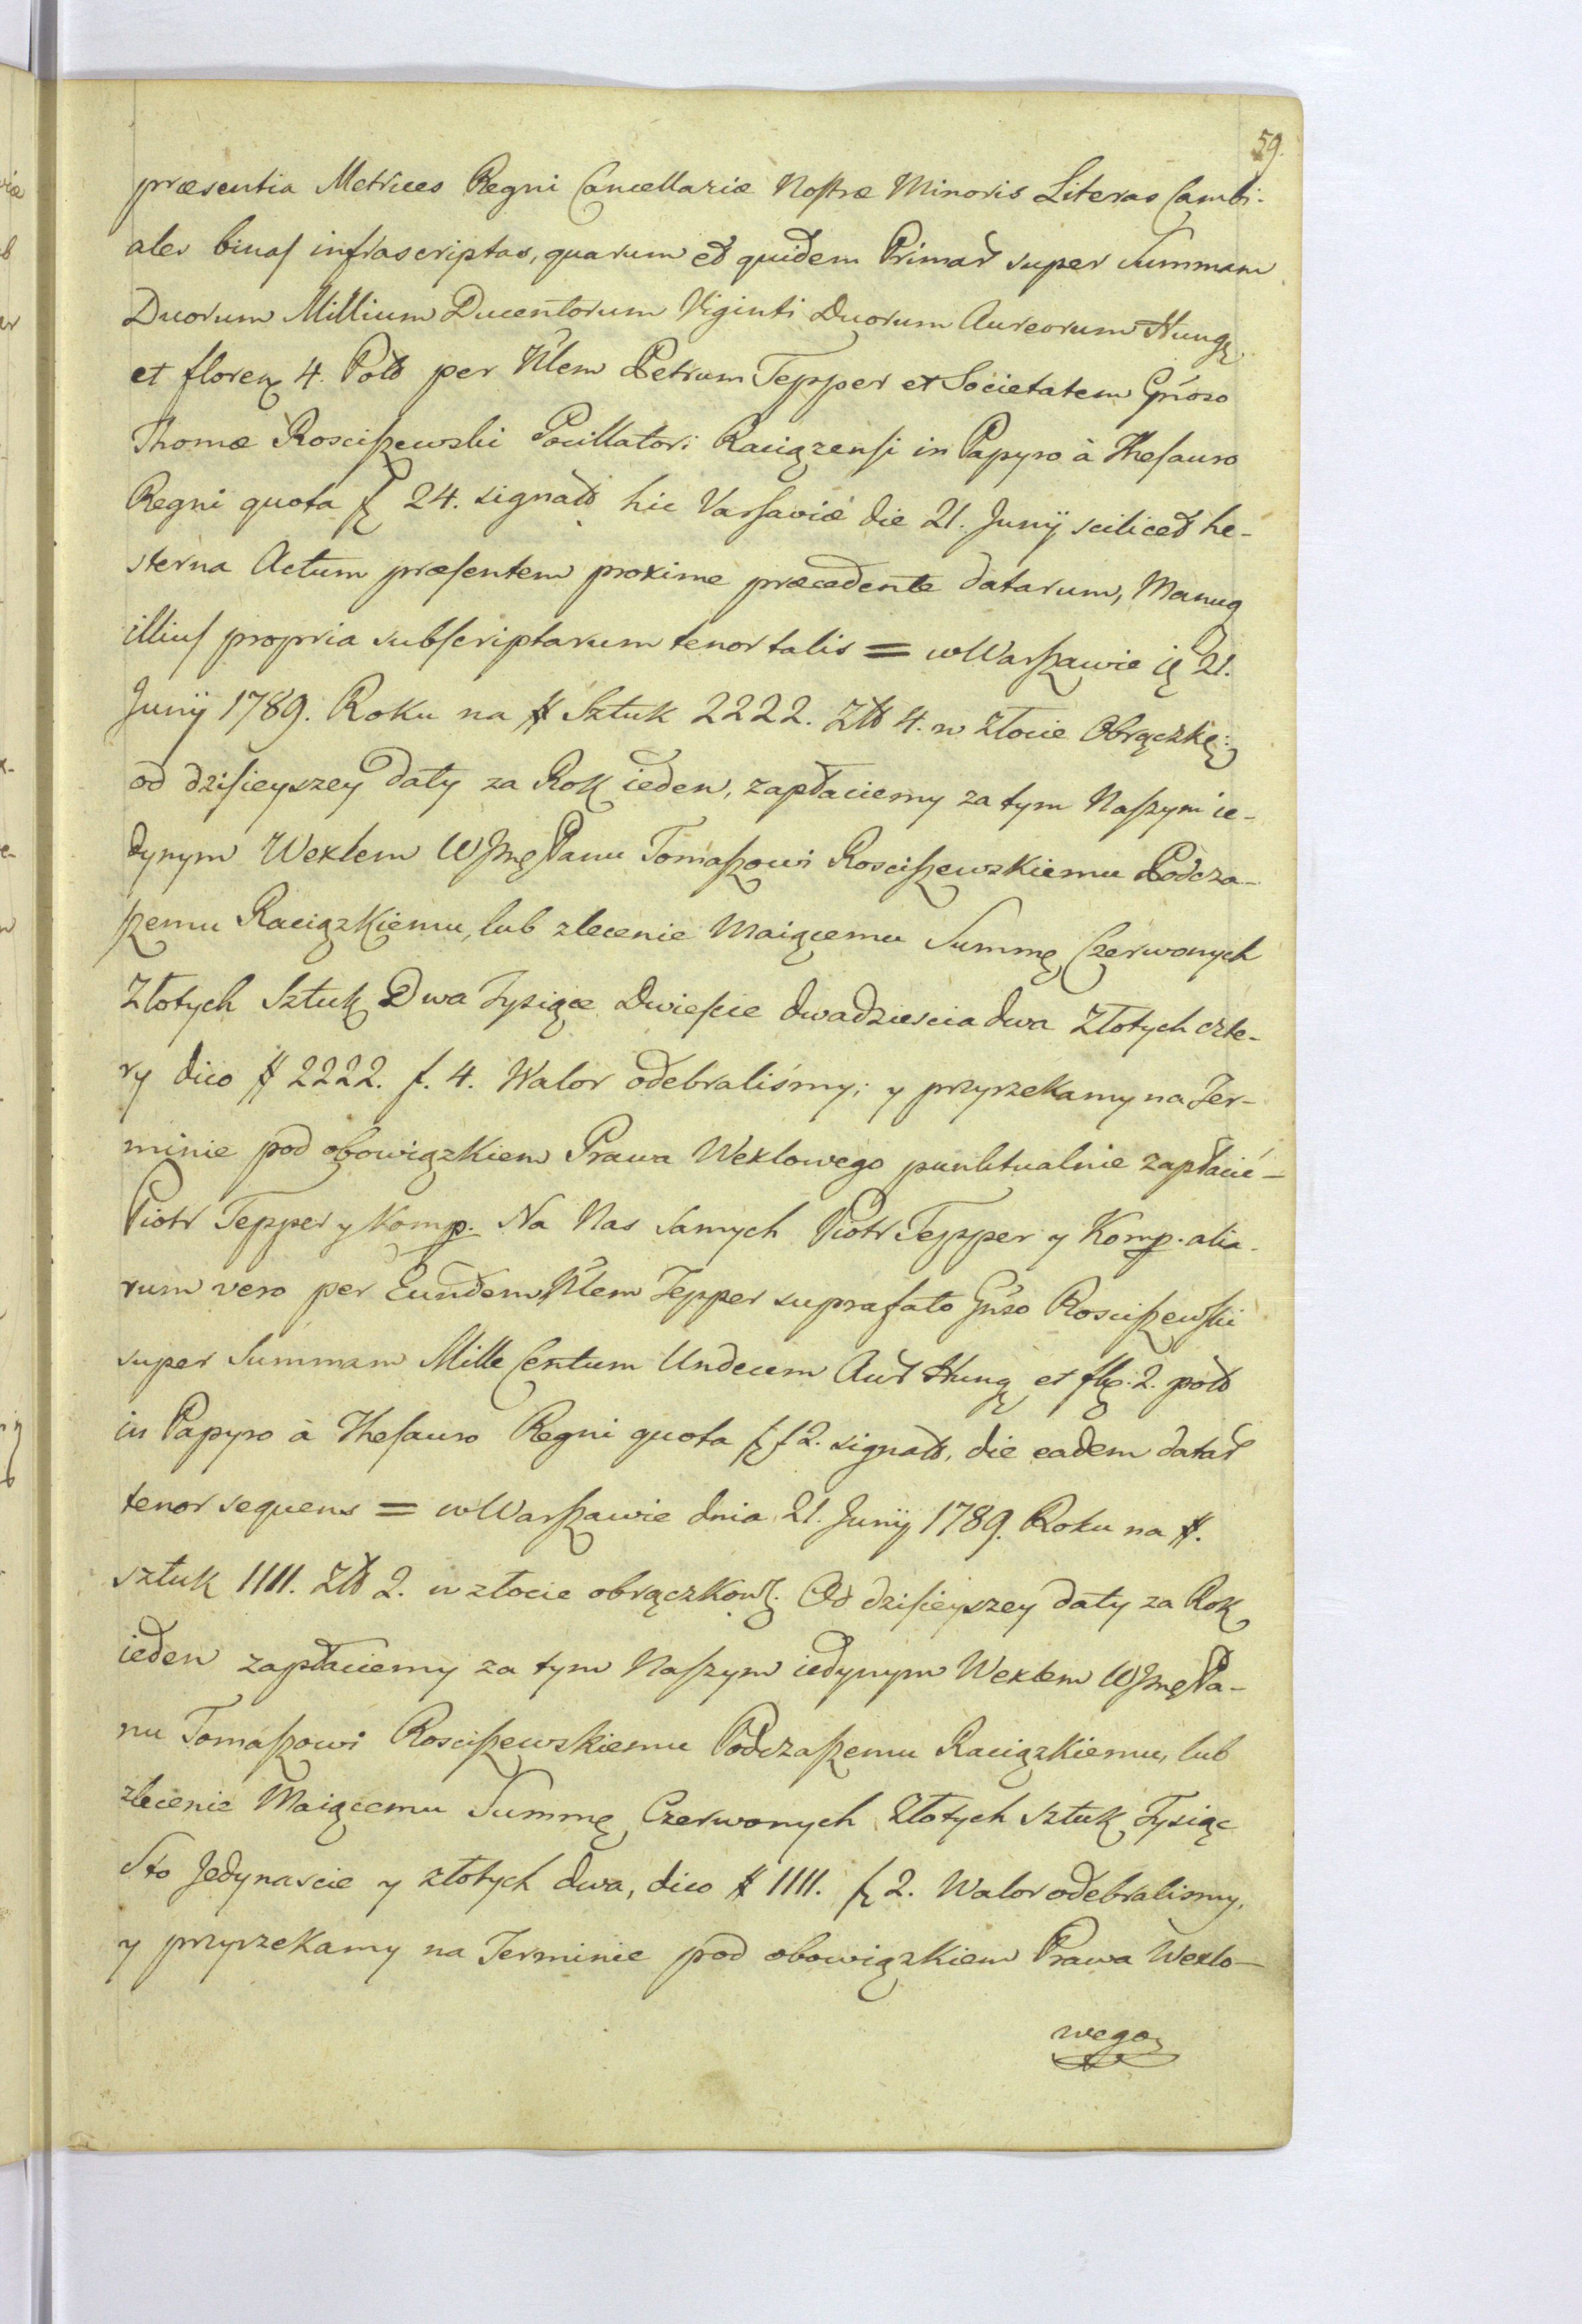 59.
præsentia Metrices Regni Cancellariæ Nostræ Minoris Literas Cambi-
ales binas infrascriptas, quarum et quidem Primar super Summam
Duorum Millium Ducentorum Viginti Duorum Aureorum Hung
et floren 4. Pold per Nlem Petrum Tepper et Societatem Gnoso
Thomæ Rosciszewski Pocillatori Raciązensi in Papyro à Thesauro
Regni quota f 24. signato hic Varsaviæ die 21. Junij scilicet he-
sterna Actum præsentem proxime præcedente datarum, Manuq
illius propria subscriptarum tenor talis = w Warszawie 21.
Junij 1789. Roku na # Sztuk 2222. Zlł 4. w złocie Obrączk:
od dzisieyszey daty za Rok ieden, zapłaciemy za tym Naszym ie-
dynym Wexlem WJmę Panu Tomaszowi Rosciszewskiemu Podcza-
szemu Raciązkiemu, lub zlecenie Maiącemu Summę Czerwonych
Złotych Sztuk Dwa Tysiące Dwieście dwadziescia dwa Złotych czte-
ry dico # 2222. f. 4. Walor odebraliśmy; y przyrzekamy na Ter-
minie pod obowiązkiem Prawa Wexlowego punktualnie zapłacić –
Piotr Tepper y Komp. Na Nas samych Piotr Tepper y Komp. alia-
rum vero per Eundem Nlem Tepper suprafato Gnso Rosciszewski
super Summam Mille Centum Undecem Aur Hung et fl: 2. pold
in Papyro à Thesauro Regni quota f 12. signato, die eadem datar
tenor sequens = w Warszawie dnia 21. Junij 1789. Roku na #.
sztuk 1111. Zlł 2. w złocie obrączkow. Od dzisieyszey daty za Rok
ieden zapłaciemy za tym Naszym iedynym Wexlem WJmę Pa-
nu Tomaszowi Rosciszewskiemu Podczaszemu Raciązkiemu, lub
zlecenie Maiącemu Summę Czerwonych Złotych sztuk Tysiąc
Sto Jedynascie y złotych dwa, dico # 1111. f 2. Walor odebralismy,
y przyrzekamy na Terminie pod obowiązkiem Prawa Wexlo-
wego